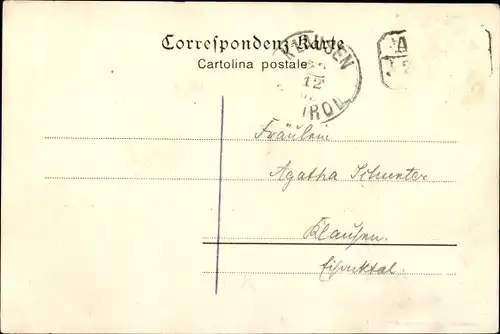 Correspondenz-Karte
Cartolina postale
KLAUSEN
12
TIROL
Fräulein
Agatha Schunter
Klausen.
Eisaktal.